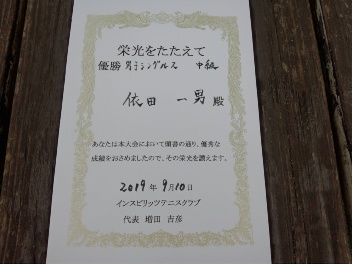 栄光をたたえて
優勝 男子シングルス 中級
依田 一男 殿
あなたは本大会において頭書の通り、優秀な
成績をおさめましたので、その栄光を讃えます。
2019年9月10日
インスピリッツテニスクラブ
代表 増田 吉彦